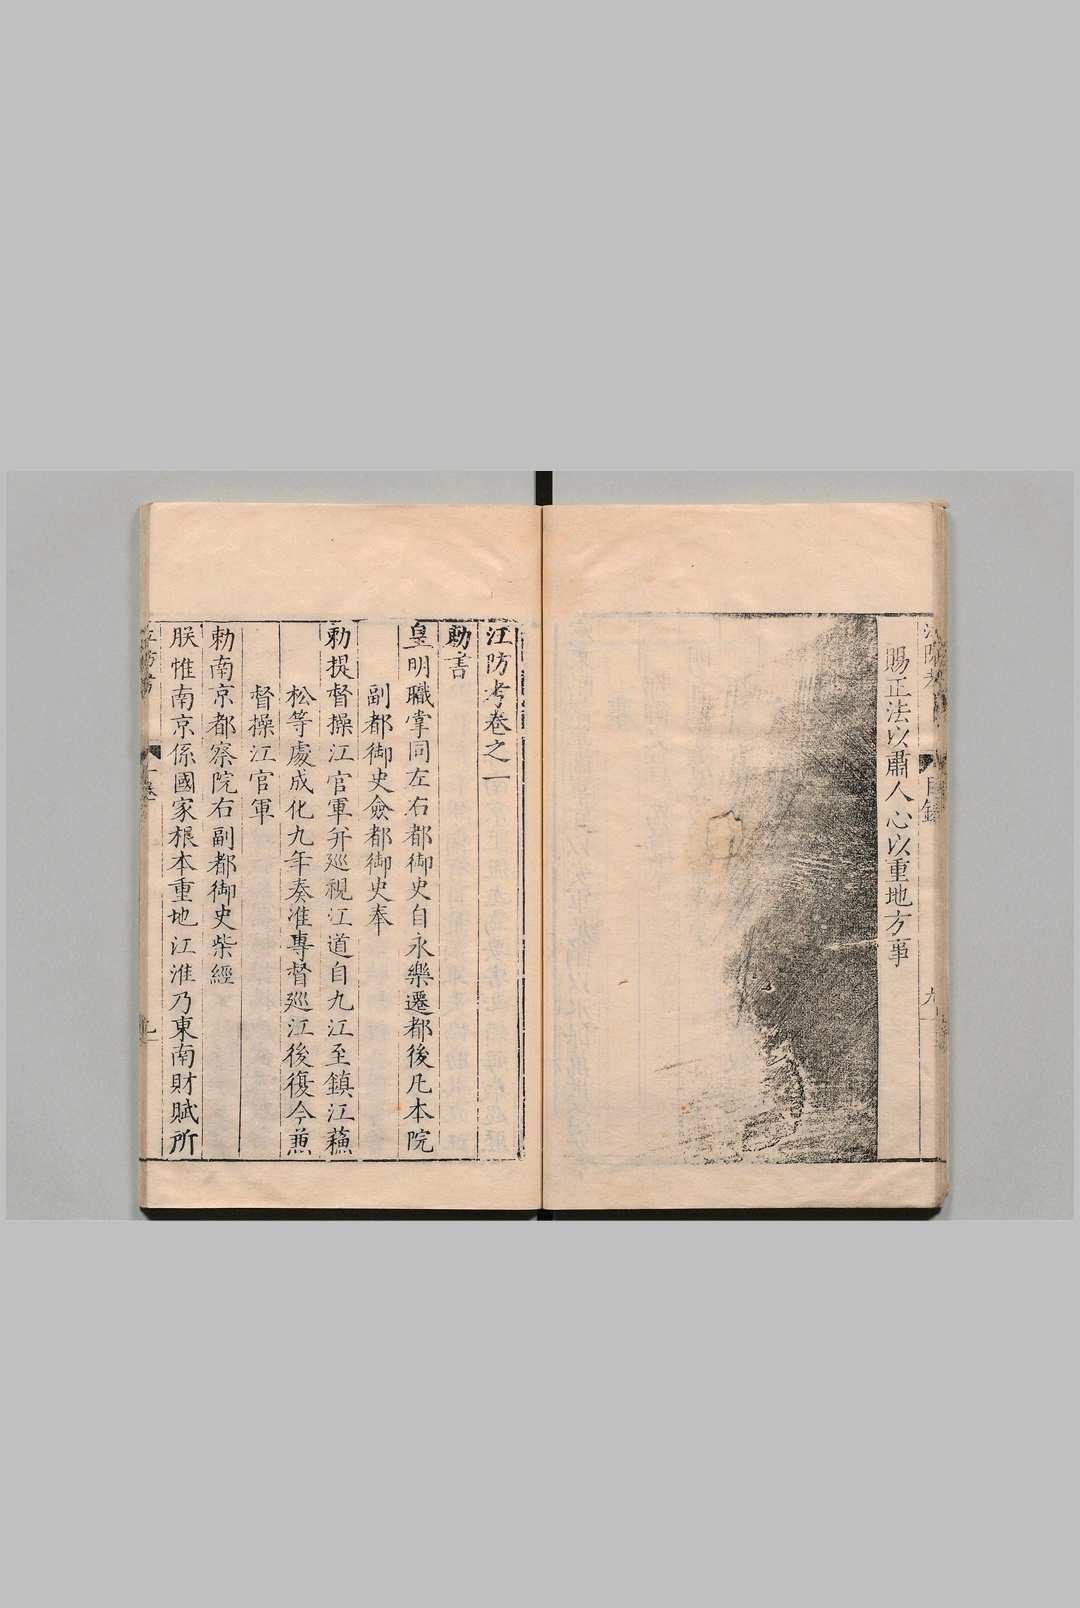 江防考
目錄
九
賜正法以肅人心以重地方事
江防考卷之一
勅書
皇明職掌同左右都御史自永樂遷都後凡本院
副都御史僉都御史奉
勅提督操江官軍并巡視江道自九江至鎮江蘓
松等處成化九年奏准專督廵江後復今兼
督操江官軍
勅南京都察院右副都御史柴經
朕惟南京係國家根本重地江淮乃東南財賦所
江防考
一卷